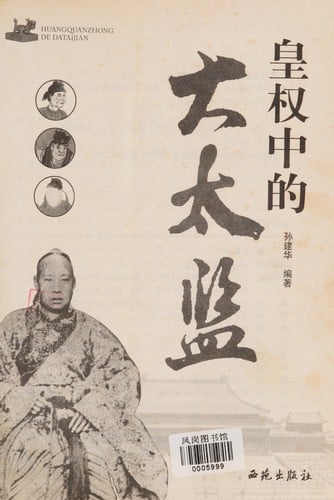 HUANGQUANZHONG
DE DATAIJIAN
皇权中的
大太监
孙建华 编著
凤岗图书馆
0005999
西苑出版社